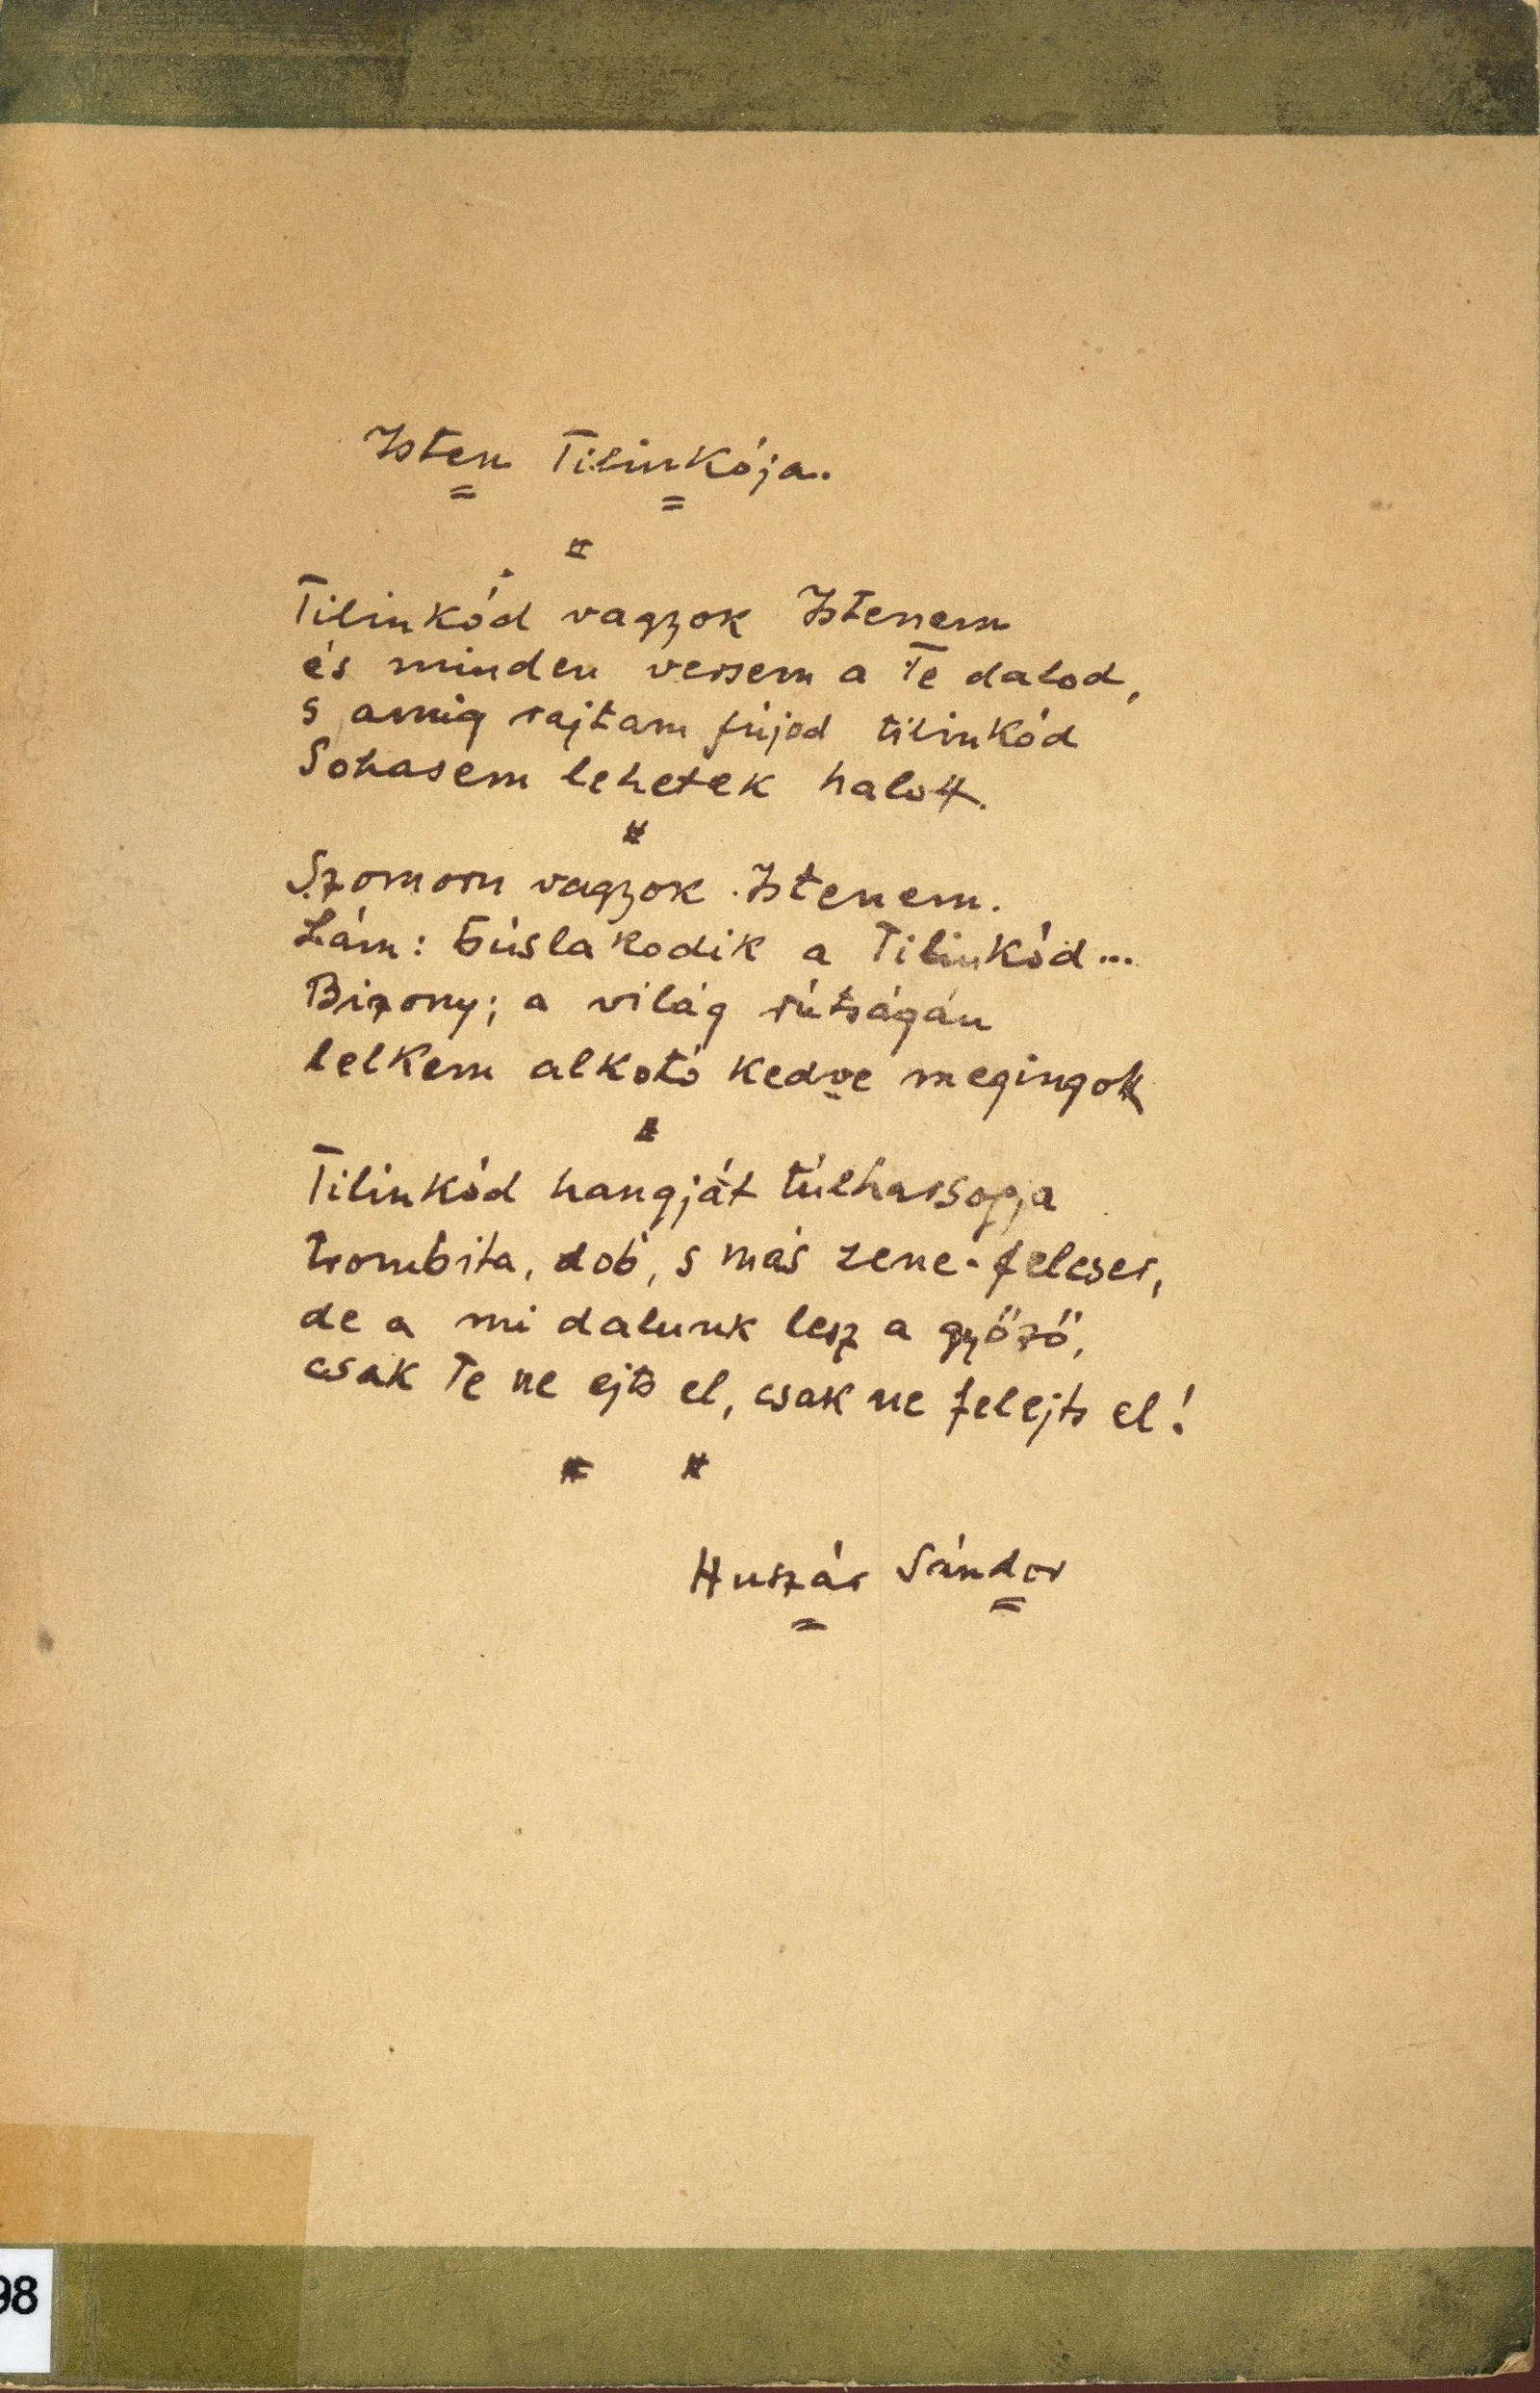 Isten Tilinkója.
Tilinkód vagyok Istenem
és minden versem a Te dalod,
s amig rajtam fújod tilinkód
Sohasem lehetek halott.
Szomoru vagyok Istenem.
Lám: búslakodik a Tilinkód...
Bizony; a világ rútságán
lelkem alkotó kedve megingott
Tilinkód hangját túlharsogja
trombita, dob, s más zene-felcser,
de a mi dalunk lesz a győző,
csak Te ne ejts el, csak ne felejts el!
Huszár Sándor
98